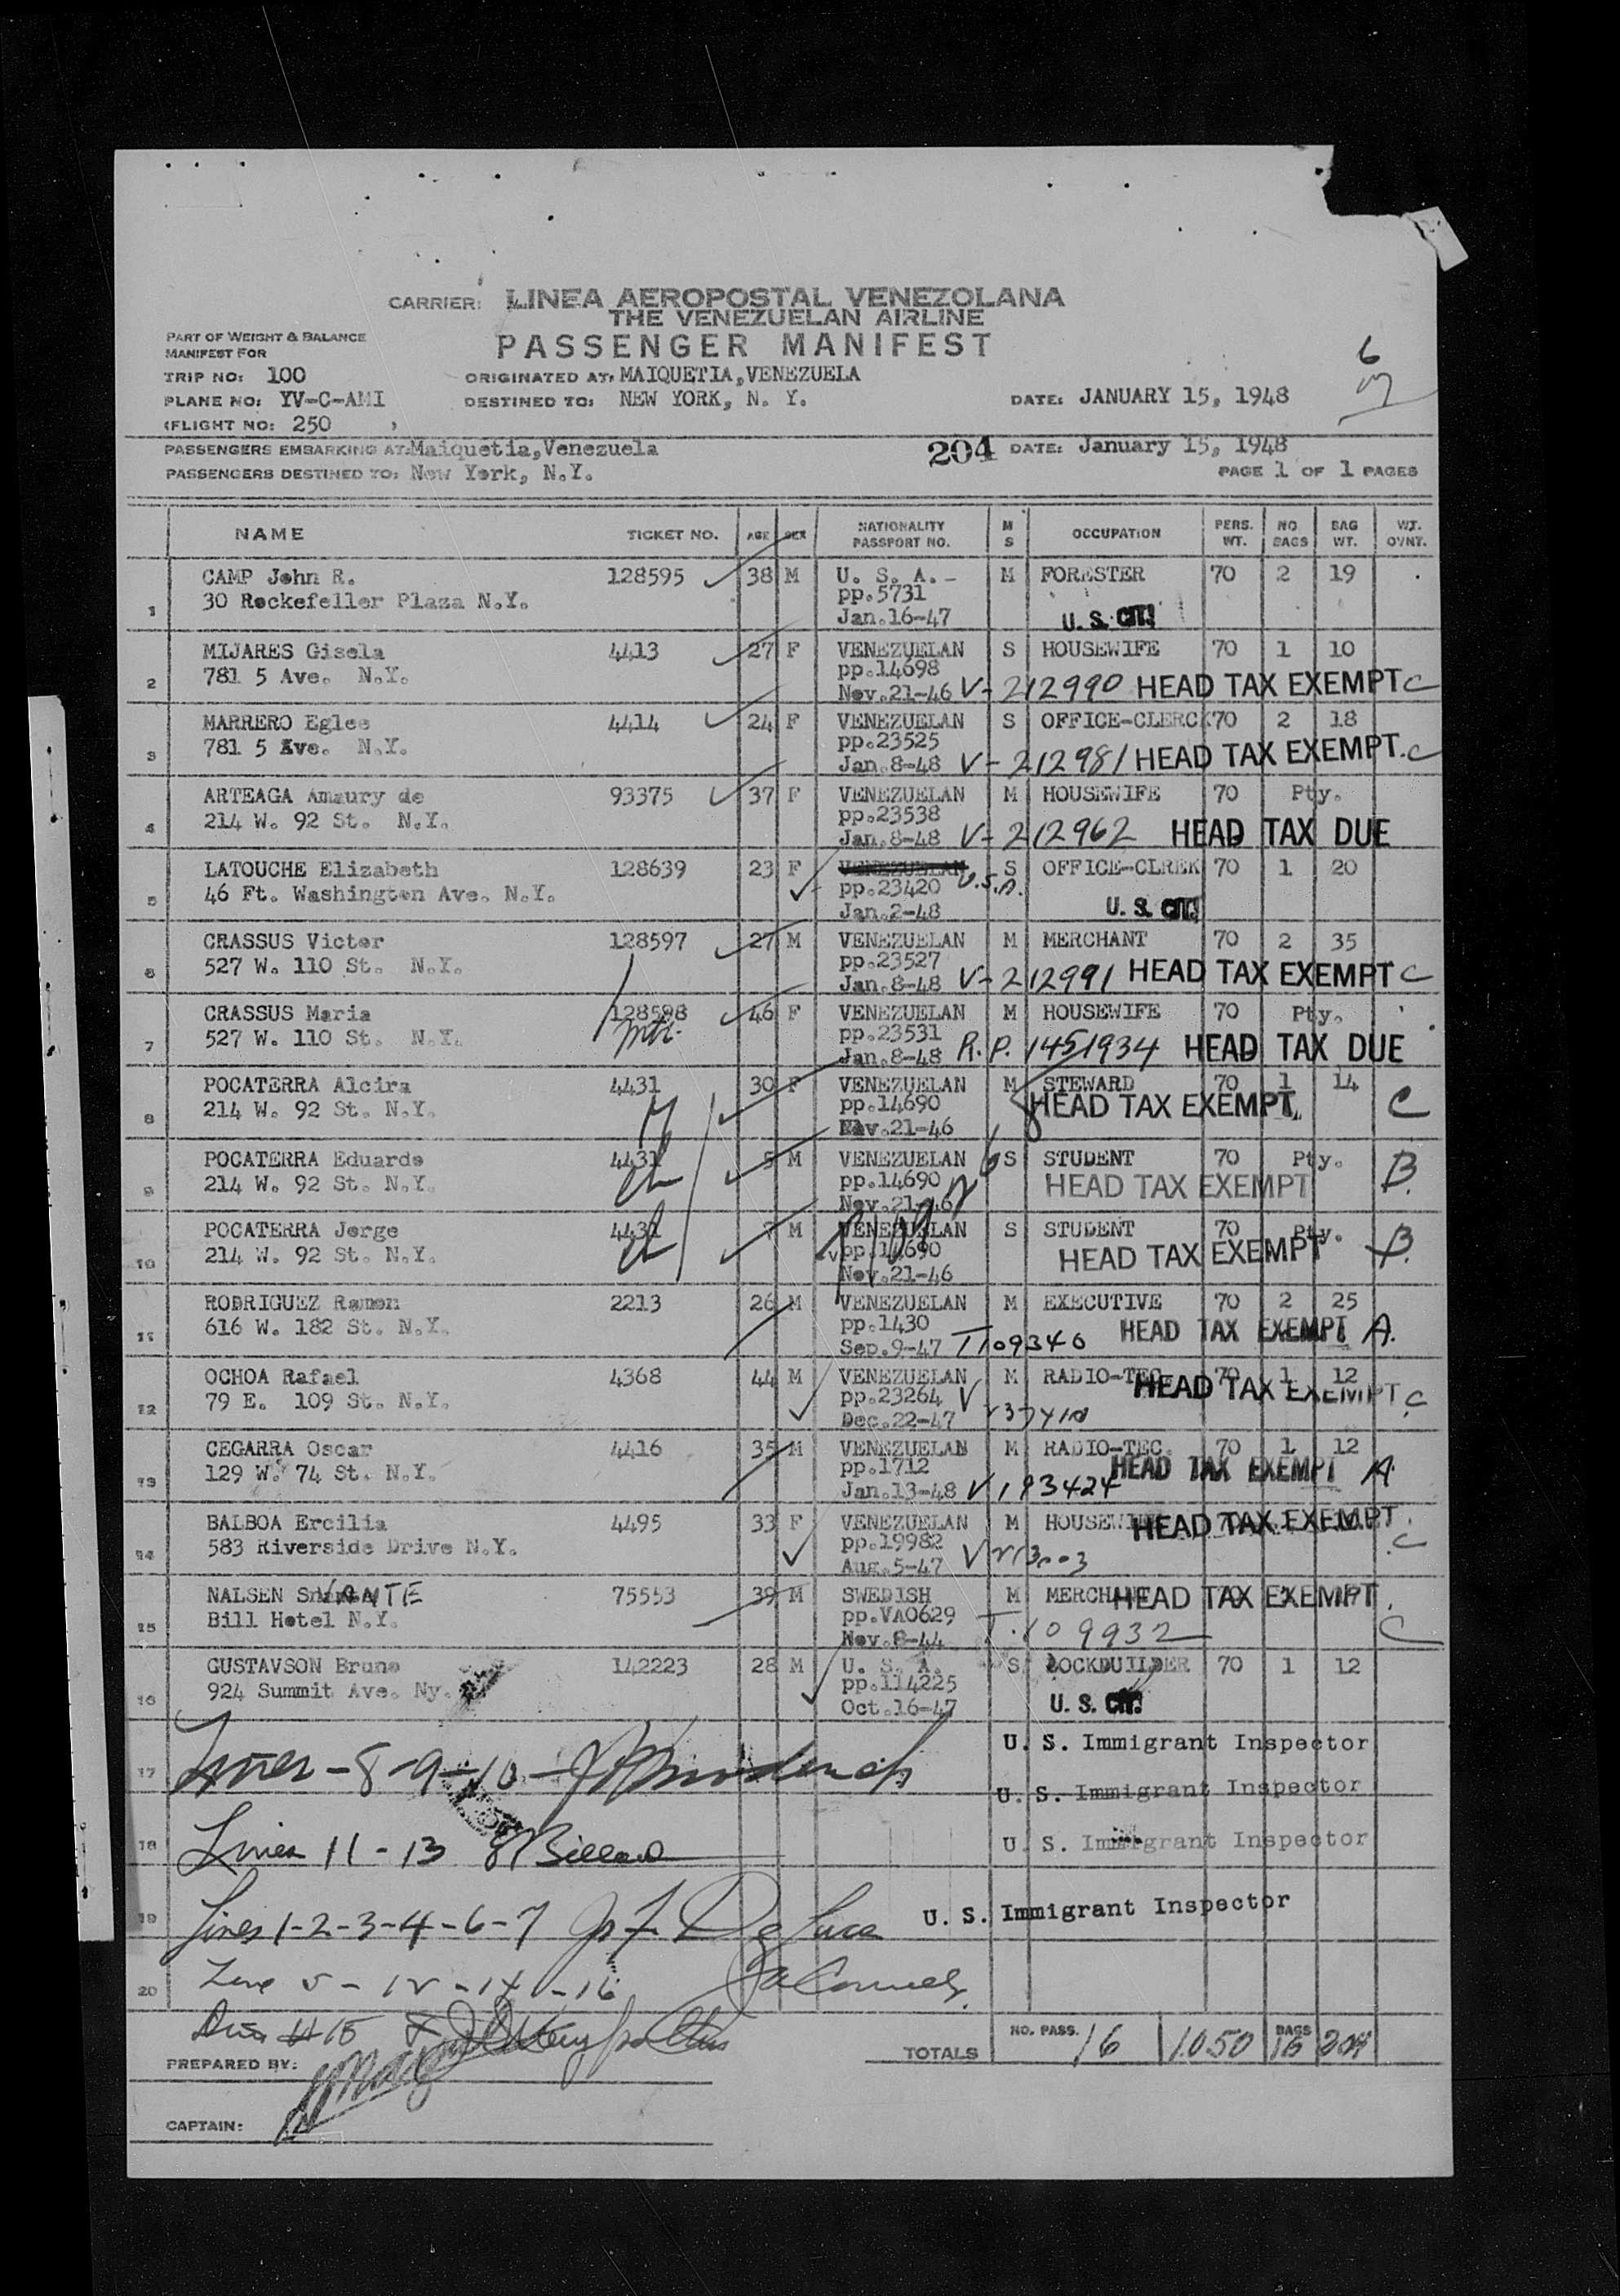 CARRIER: LINEA AEROPOSTAL VENEZOLANA
THE VENEZUELAN AIRLINE
PASSENGER MANIFEST
PART OF WEIGHT & BALANCE
MANIFEST FOR
TRIP NO: 100 ORIGINATED AT: MAIQUETIA,VENEZUELA
PLANE NO: YV-C-AMI DESTINED TO: NEW YORK, N. Y. DATE: JANUARY 15, 1948
(FLIGHT NO: 250 )
6
PASSENGERS EMBARKING AT: Maiquetia,Venezuela 204 DATE: January 15, 1948
PASSENGERS DESTINED TO: New York, N.Y. PAGE 1 OF 1 PAGES
NAME TICKET NO. AGE SEX NATIONALITY PASSPORT NO. M S OCCUPATION PERS. WT. NO BAGS BAG WT. WT. OVNT.
CAMP John R. 128595 38 M U. S. A. - M FORESTER 70 2 19
30 Rockefeller Plaza N.Y. pp.5731
1 Jan.16-47 U. S. CIT!
MIJARES Gisela 4413 27 F VENEZUELAN S HOUSEWIFE 70 1 10
781 5 Ave. N.Y. pp.14698
2 Nov.21-46 V-212990 HEAD TAX EXEMPT C
MARRERO Eglee 4414 24 F VENEZUELAN S OFFICE-CLERCK 70 2 18
781 5 Ave. N.Y. pp.23525
3 Jan.8-48 V-212981 HEAD TAX EXEMPT. C
ARTEAGA Amaury de 93375 37 F VENEZUELAN M HOUSEWIFE 70 Pty.
214 W. 92 St. N.Y. pp.23538
4 Jan.8-48 V-212962 HEAD TAX DUE
LATOUCHE Elizabeth 128639 23 F VENEZUELAN S OFFICE-CLREK 70 1 20
46 Ft. Washington Ave. N.Y. pp.23420 U.S.A.
5 Jan.2-48 U. S. CIT!
CRASSUS Victor 128597 27 M VENEZUELAN M MERCHANT 70 2 35
527 W. 110 St. N.Y. pp.23527
6 Jan.8-48 V-212991 HEAD TAX EXEMPT C
CRASSUS Maria 128598 46 F VENEZUELAN M HOUSEWIFE 70 Pty.
527 W. 110 St. N.Y. pp.23531
7 Jan.8-48 R.P. 1451934 HEAD TAX DUE
POCATERRA Alcira 4431 30 F VENEZUELAN M STEWARD 70 1 14
214 W. 92 St. N.Y. pp.14690 HEAD TAX EXEMPT C
8 Nov.21-46
POCATERRA Eduardo 4431 M VENEZUELAN S STUDENT 70 Pty. B
214 W. 92 St. N.Y. pp.14690 HEAD TAX EXEMPT
9 Nov.21-46
POCATERRA Jorge 4431 M VENEZUELAN S STUDENT 70 Pty.
214 W. 92 St. N.Y. pp.14690 HEAD TAX EXEMPT B
10 Nov.21-46
RODRIGUEZ Ramon 2213 26 M VENEZUELAN M EXECUTIVE 70 2 25
616 W. 182 St. N.Y. pp.1430 HEAD TAX EXEMPT A.
11 Sep.9-47 T109340
OCHOA Rafael 4368 44 M VENEZUELAN M RADIO-TEC. 70 1 12
79 E. 109 St. N.Y. pp.23264 V HEAD TAX EXEMPT C
12 Dec.22-47
CEGARRA Oscar 4416 35 M VENEZUELAN M RADIO-TEC. 70 1 12
129 W. 74 St. N.Y. pp.1712 HEAD TAX EXEMPT A
13 Jan.13-48 V193424
BALBOA Ercilia 4495 33 F VENEZUELAN M HOUSEWIFE HEAD TAX EXEMPT
583 Riverside Drive N.Y. pp.19982 C
14 Aug.5-47
NALSEN VANTE 75553 39 M SWEDISH M MERCHANT HEAD TAX EXEMPT
Bill Hotel N.Y. pp.VA0629
15 Nov.8-44 T.109932 C
GUSTAVSON Bruno 142223 28 M U. S. A. S DOCKBUILDER 70 1 12
924 Summit Ave. Ny. pp.114225
16 Oct.16-47 U. S. CIT!
U. S. Immigrant Inspector
17 Lines - 8-9-10
U. S. Immigrant Inspector
18 Lines 11 - 13
U. S. Immigrant Inspector
19 Lines 1-2-3-4-6-7 De Luca
U. S. Immigrant Inspector
20 Line 5 - 12 - 14 - 16
15
TOTALS NO. PASS. 16 1050 BAGS 16 204
PREPARED BY:
CAPTAIN: